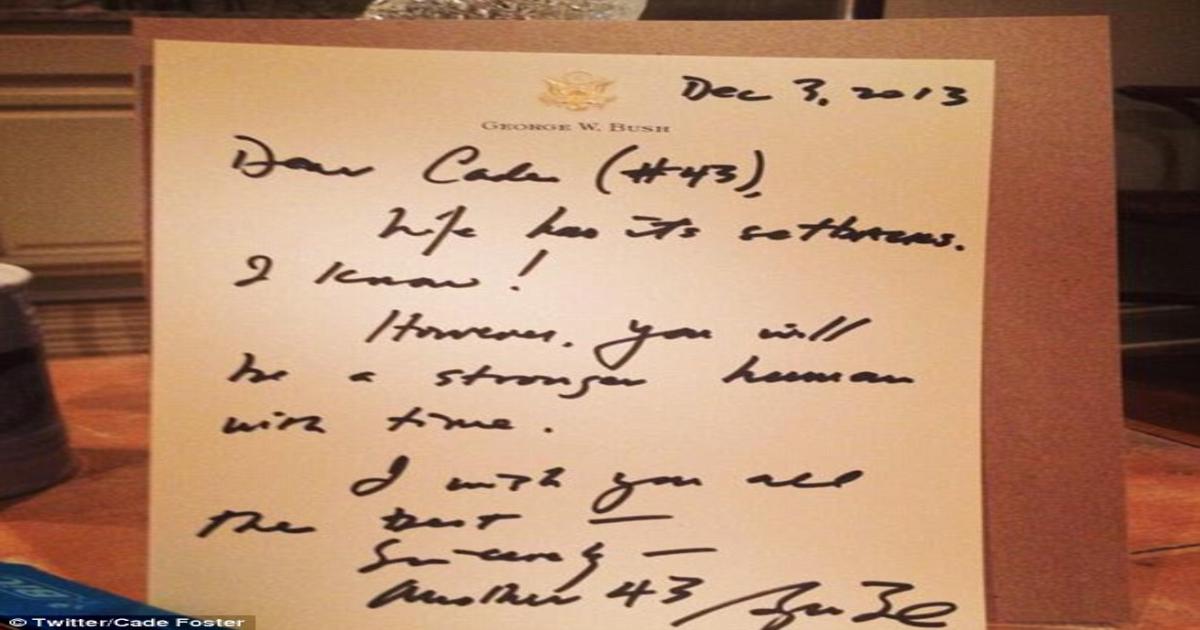 Dec 3, 2013
GEORGE W. BUSH
Dear Cade (#43),
Life has its setbacks.
I know!
However, you will
be a stronger human
with time.
I wish you all
the best —
Sincerely —
Another 43
© Twitter/Cade Foster